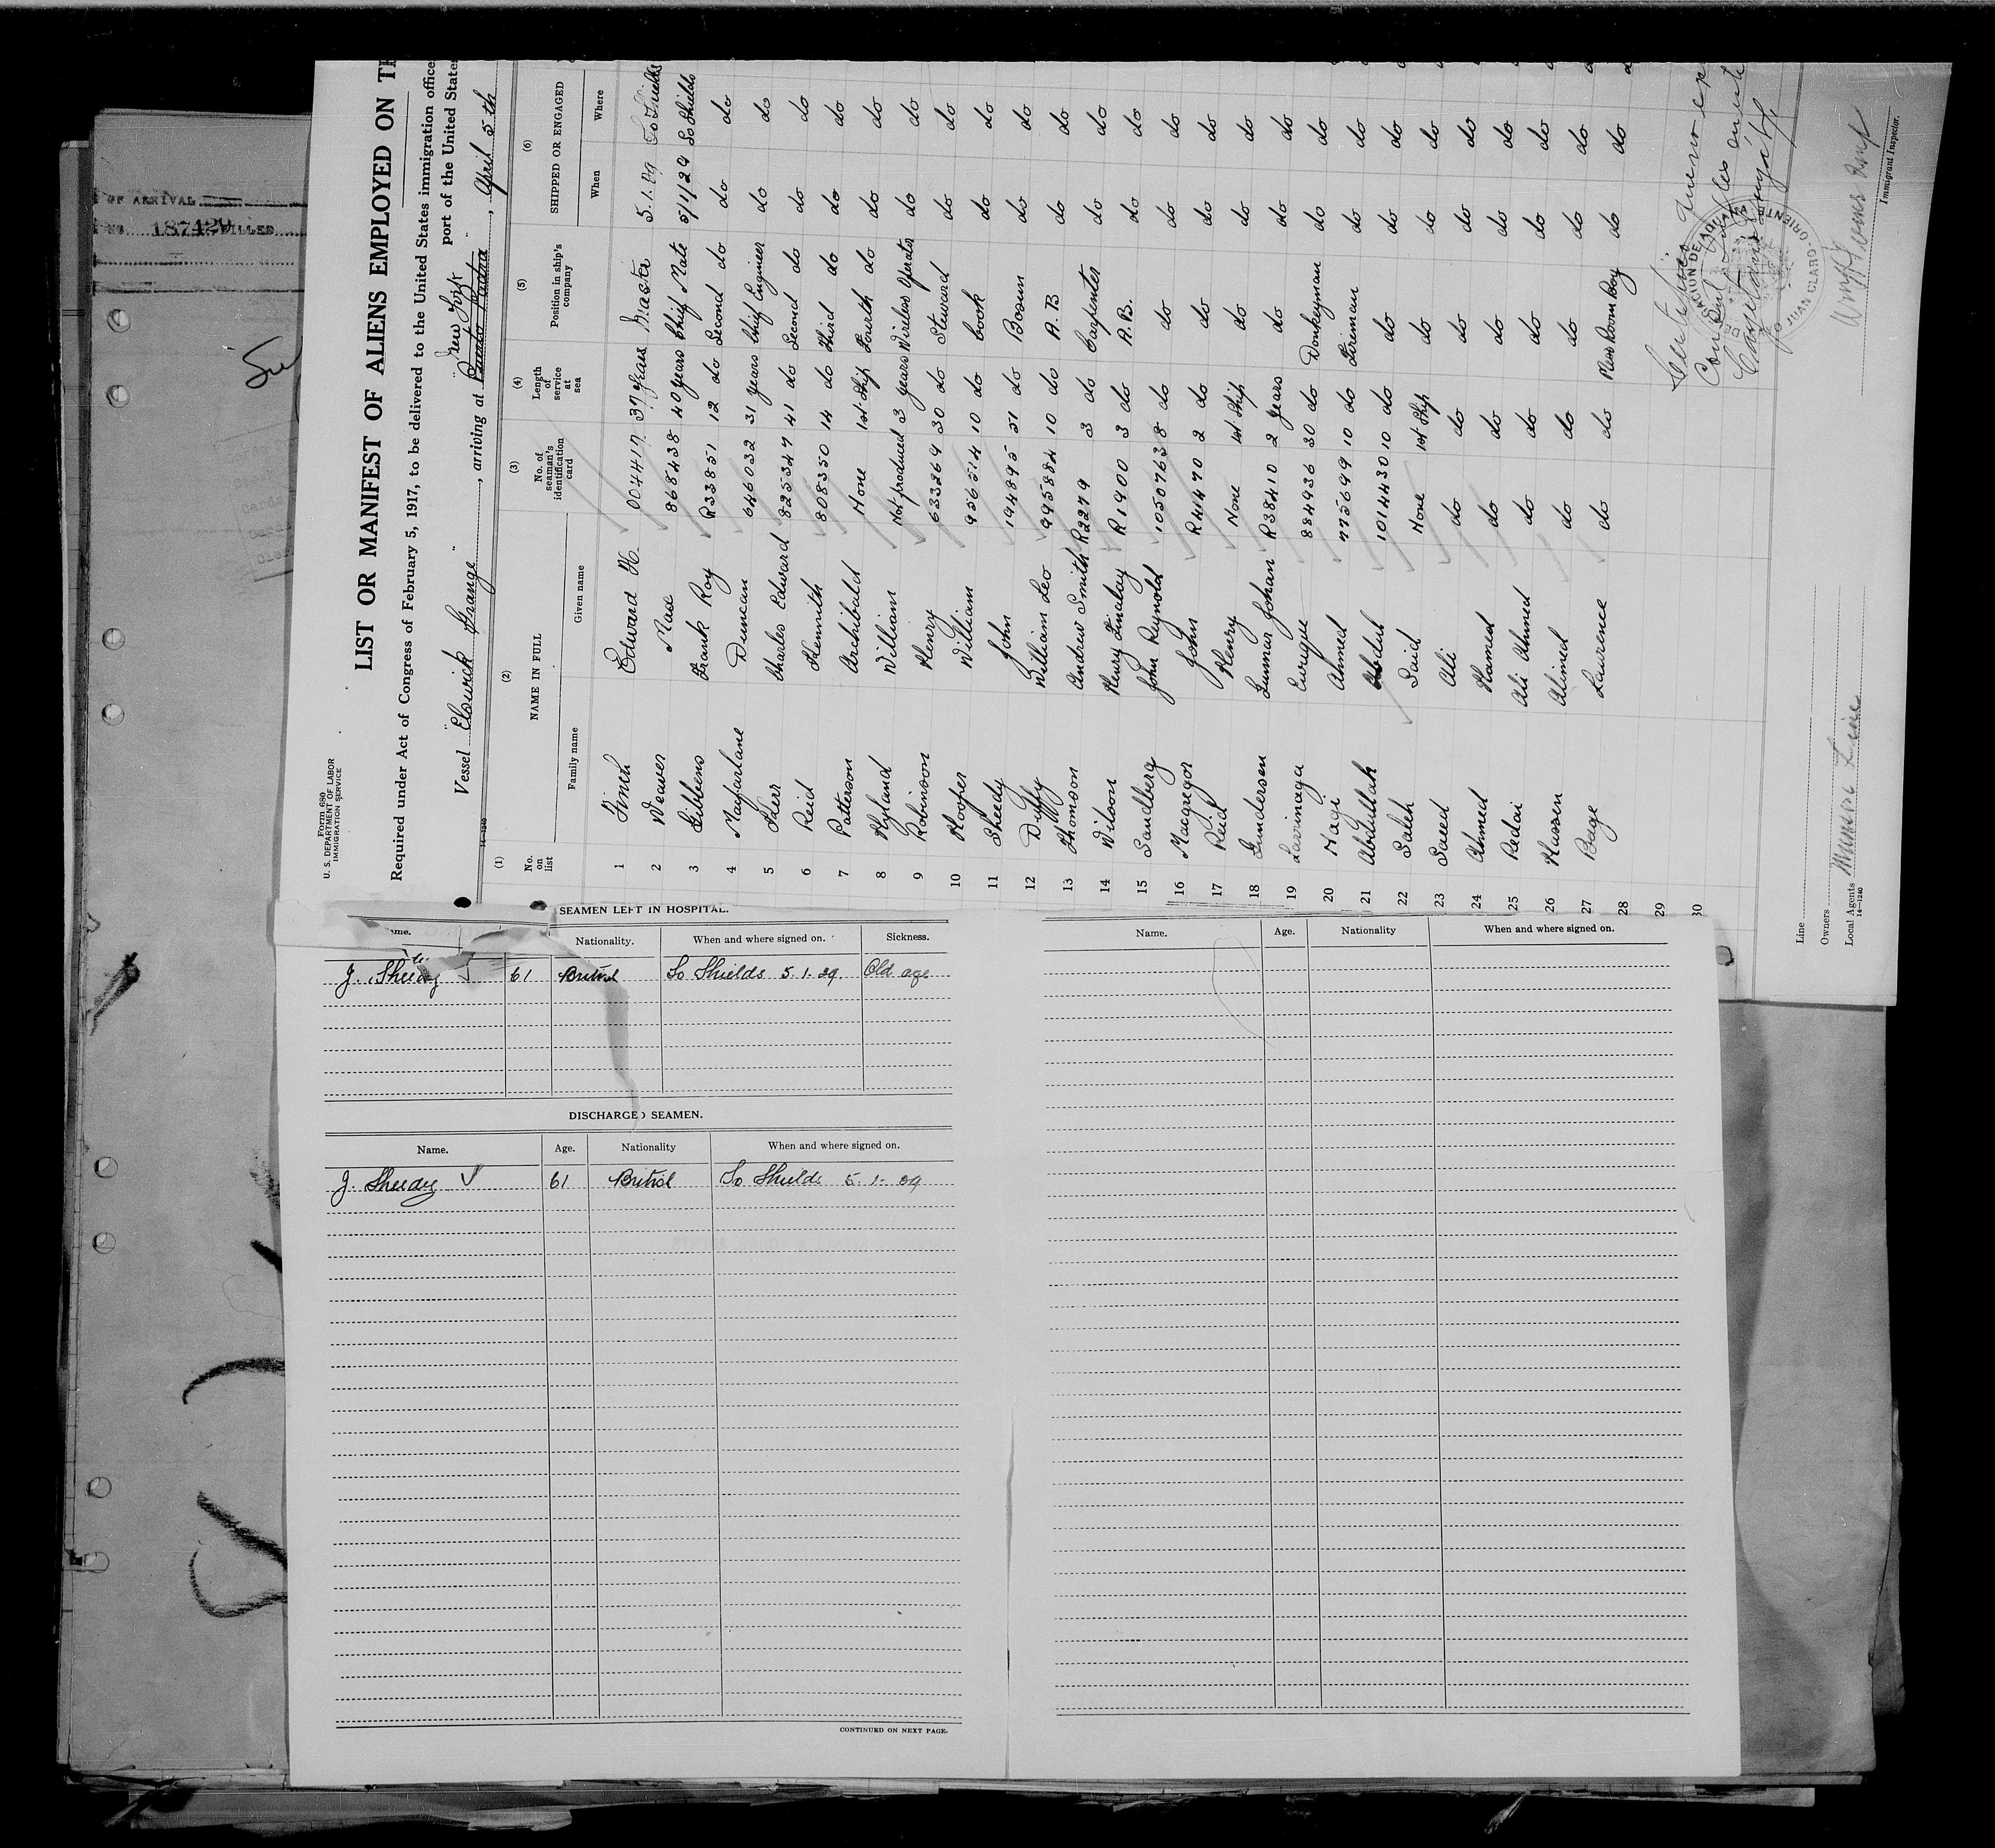 OF ARRIVAL
NO. 187429 FILLED
Form 680
U. S. DEPARTMENT OF LABOR
IMMIGRATION SERVICE
LIST OR MANIFEST OF ALIENS EMPLOYED ON TH
Required under Act of Congress of February 5, 1917, to be delivered to the United States immigration office
port of the United States
New York
Vessel "Elswick Grange", arriving at Puerto Padra, April 5th
(1) (2) (3) (4) (5) (6)
No. on list NAME IN FULL No. of seaman's identification card Length of service at sea Position in ship's company SHIPPED OR ENGAGED
Family name Given name When Where
1 Finch Edward H. 004417 37 Years Master 5.1.29 So Shields
2 Weaver Max 868438 40 years Chief Mate 5/1/29 So Shields
3 Gibbens Frank Roy R33851 12 do Second do do do
4 Macfarlane Duncan 646032 31 years Chief Engineer do do
5 Kerr Charles Edward 825347 41 do Second do do do
6 Reid Kennith 808350 14 do Third do do do
7 Patterson Archibald None 1st Ship Fourth do do do
8 Hyland William Not produced 3 years Wireless Operator do do
9 Robinson Henry 633269 30 do Steward do do
10 Hooper William 956514 10 do Cook do do
11 Sheedy John 194895 51 do Bosun do do
12 Duffy William Leo 995884 10 do A.B do do
13 Thomson Andrew Smith R2279 3 do Carpenter do do
14 Wilson Henry Finlay R1900 3 do A.B. do do
15 Sandberg John Reynold 1050763 8 do do do do
16 Macgregor John R41470 2 do do do do
17 Reid Henry None 1st Ship do do do
18 Gundersen Gunnar Johan R38410 2 years do do do
19 Larrinaga Enrique 884936 30 do Donkeyman do do
20 Nagi Ahmed 775699 10 do Fireman do do
21 Abdullah Abdul 1014430 10 do do do do
22 Saleh Said None 1st Ship do do do
23 Saeed Ali do do do do do
24 Ahmed Hamed do do do do do
25 Redai Ali Ahmed do do do do do
26 Hassen Ahmed do do do do do
27 Page Laurence do do Mess Room Boy do do
28
29
30
DE JUAN CLARO. ORIENTE
Line
Owners
Local Agents Munson Line
14—1240
Immigrant Inspector.
SEAMEN LEFT IN HOSPITAL.
Nationality. When and where signed on. Sickness.
J. Sheedy 61 British So Shields 5.1.29 Old age
DISCHARGED SEAMEN.
Name. Age. Nationality When and where signed on.
J. Sheedy 61 British So Shields 5-1-29
CONTINUED ON NEXT PAGE.
Name. Age. Nationality When and where signed on.